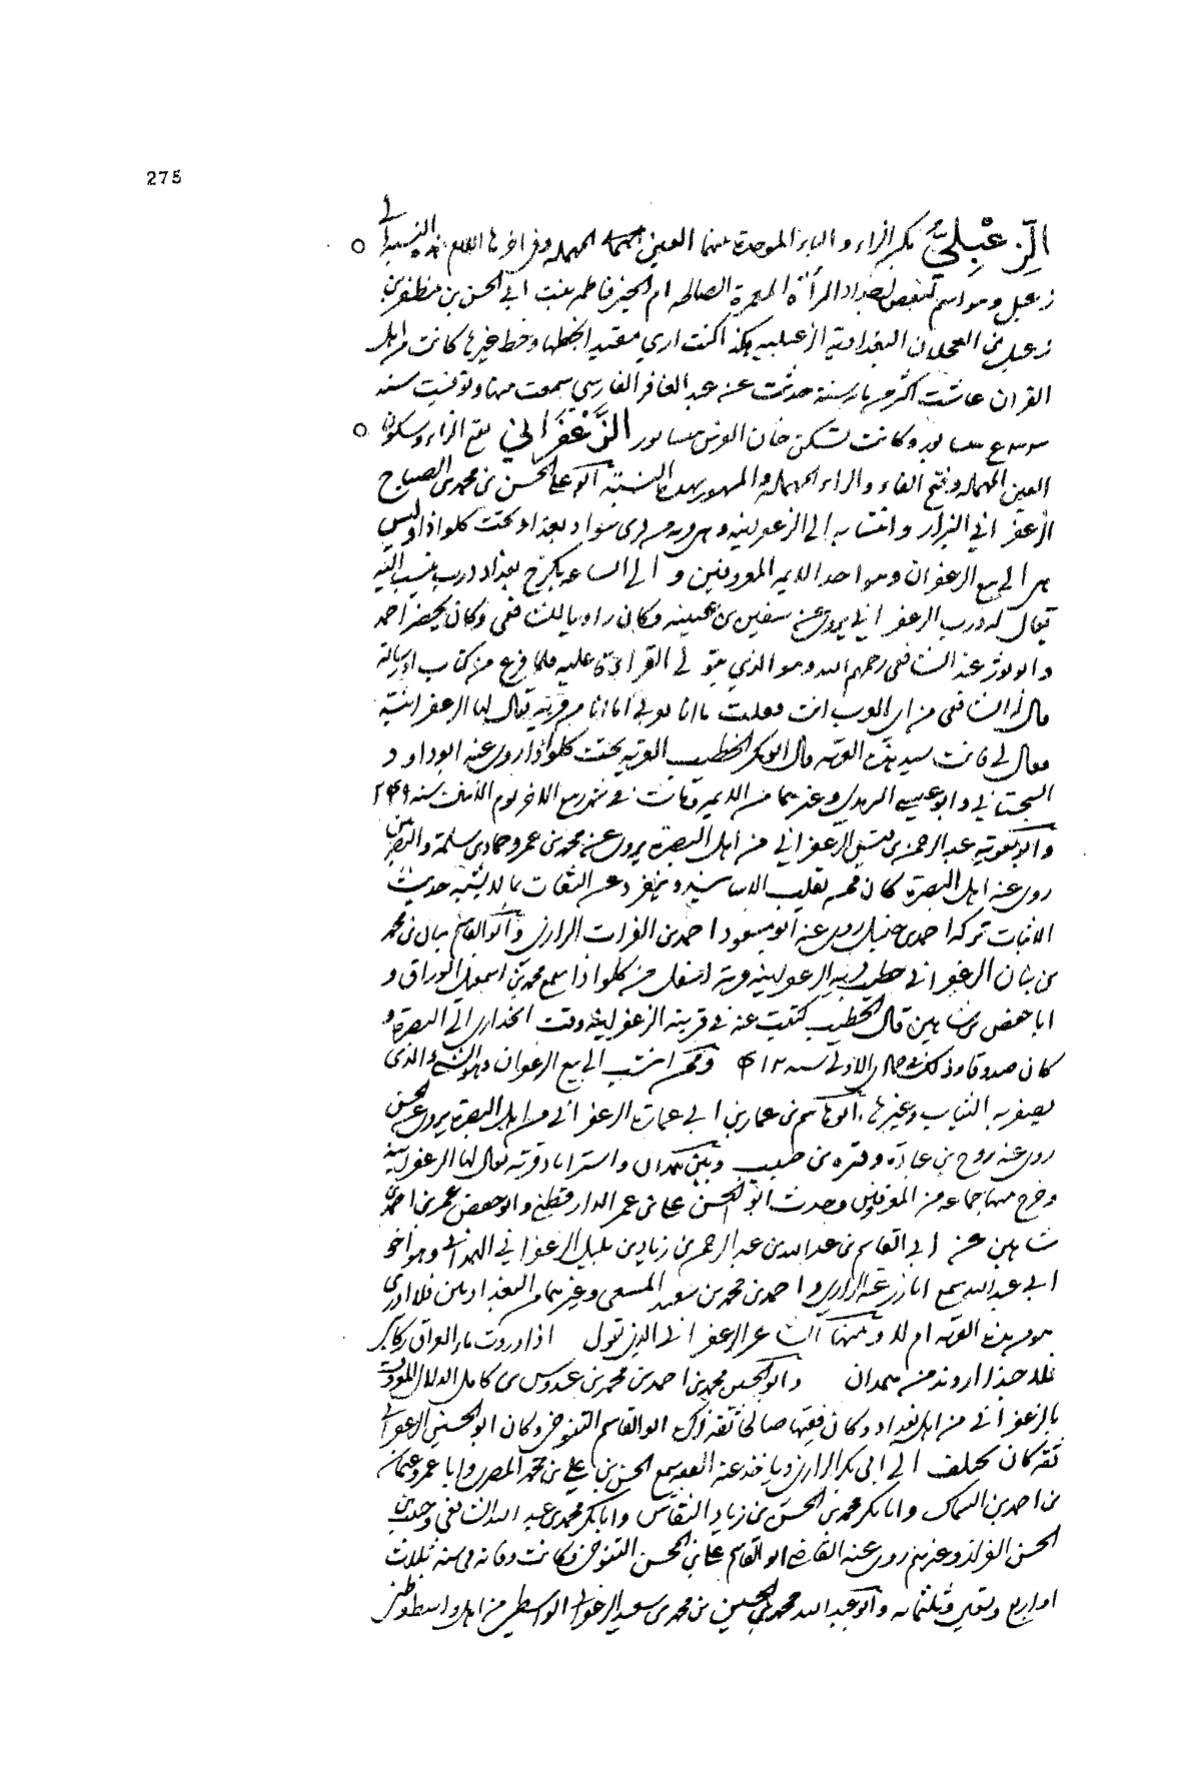 275
الزِّعْبِليُّ بكسر الزاء والباء الموحدة بينهما العين المهملة وفي اخرها اللام هذه النسبة الى
زعبل وهو اسم لبعض اجداد المرأة المعمرة الصالحة ام الخير فاطمة بنت ابي الحسن بن مظفر بن
زعبل بن العجلان البغدادية الزعبلية هكذا كنت ارى مقيدا بخطها وخط غيرها كانت من اهل
القران عاشت اكثر من مائة سنة حدثت عن عبد الغافر الفارسي سمعت منها وتوفيت سنة
وكانت تسكن خان الفرس بنيسابور الزَّعْفَراني بفتح الزاء وسكون
العين المهملة وفتح الفاء والراء المهملة والمشهور بهذه النسبة ابو علي الحسن بن محمد بن الصباح
الزعفراني البزار وانتسابه الى الزعفرانية وهي قرية من قرى سواد بغداد تحت كلواذا وليس
هو الى بيع الزعفران وهو احد الايمة المعروفين والى الساعة بكرخ بغداد درب ينسب اليه
يقال له درب الزعفراني يروي عن سفين بن عيينة وكان راويا للشافعي وكان يحضر احمد
وابو ثور عند الشافعي رحمهم الله وهو الذي يتولى القراءة عليه فلما فرغ من كتاب الرسالة
قال له الشافعي من اي العرب انت فقلت ما انا بعربي انا انا من قرية يقال لها الزعفرانية
فقال لي فانت سيد هذه القرية قال ابو بكر الخطيب القرية تحت كلواذا روى عنه ابو داود
السجستاني وابو عيسى الترمذي وغيرهما من الايمة ومات في شهر ربيع الاخر يوم الاثنين سنه ٢٤٩
وابو معوية عبد الرحمن بن قيس الزعفراني من اهل البصرة يروي عن محمد بن عمرو وحماد بن سلمة والبصريين
روى عنه اهل البصرة كان ممن يقلب الاسانيد وينفرد عن الثقات بما لا يشبه حديث
الاثبات تركه احمد بن حنبل روى عنه ابو مسعود احمد بن الفرات الرازي وابو القاسم بيان بن محمد
بن بيان الزعفراني خطيب قرية الزعفرانية قرية اسفل من كلواذا سمع محمد بن اسمعيل الوراق و
ابا حفص بن شاهين قال الخطيب كتبت عنه في قرية الزعفرانية وقت انحداري الى البصرة و
كان صدوقا وذلك في جمادى الاولى سنه ٤١٢ وممن انتسب الى بيع الزعفران وهو الشيء الذي
يصفر به الثياب وغيرها ابو هاشم بن عمار بن ابي عمارة الزعفراني من اهل البصرة يروي عن الحسن
روى عنه روح بن عبادة وقرة بن حبيب وبين همدان واستراباد قرية يقال لها الزعفرانية
وخرج منها جماعة من المعروفين وحدث ابو الحسن علي بن عمر الدارقطني وابو حفص عمر بن احمد بن
شاهين عن ابي القاسم بن عبد الله بن عبد الرحمن بن زياد بن بلبل الزعفراني الهمداني وهو اخو
ابي عبد الله سمع ابا زرعة الرازي واحمد بن محمد بن سعيد المسعى وغيرهما من البغداديين فلا ادري
هو من هذه القرية ام لا ومنها الشاعر الزعفراني الذي يقول اذا وردت ماء العراق ركائبي
فلا حبذا اروند من همدان وابو الحسن محمد بن احمد بن محمد بن عبدوس بن كامل الدلال المعروف
بالزعفراني من اهل بغداد وكان فقيها صالحا ثقة ذكره ابو القاسم التنوخي وكان ابو الحسن الزعفراني
ثقة كان يختلف الى ابي بكر الرازي وياخذ عنه الفقه سمع الحسن بن علي بن محمد المصري وابا عمرو عثمان
بن احمد بن السماك وابا بكر محمد بن الحسن بن زياد النقاش وابا بكر محمد بن عبد الله الشافعي وحدث
الحسن الفرائد وغيرهم روى عنه القاضي ابو القاسم علي بن الحسن التنوخي وكانت وفاته في سنة ثلاث
او اربع وتسعين وثلثمائه وابو عبد الله محمد بن الحسين بن محمد بن سعيد الزعفراني الواسطي من اهل واسط